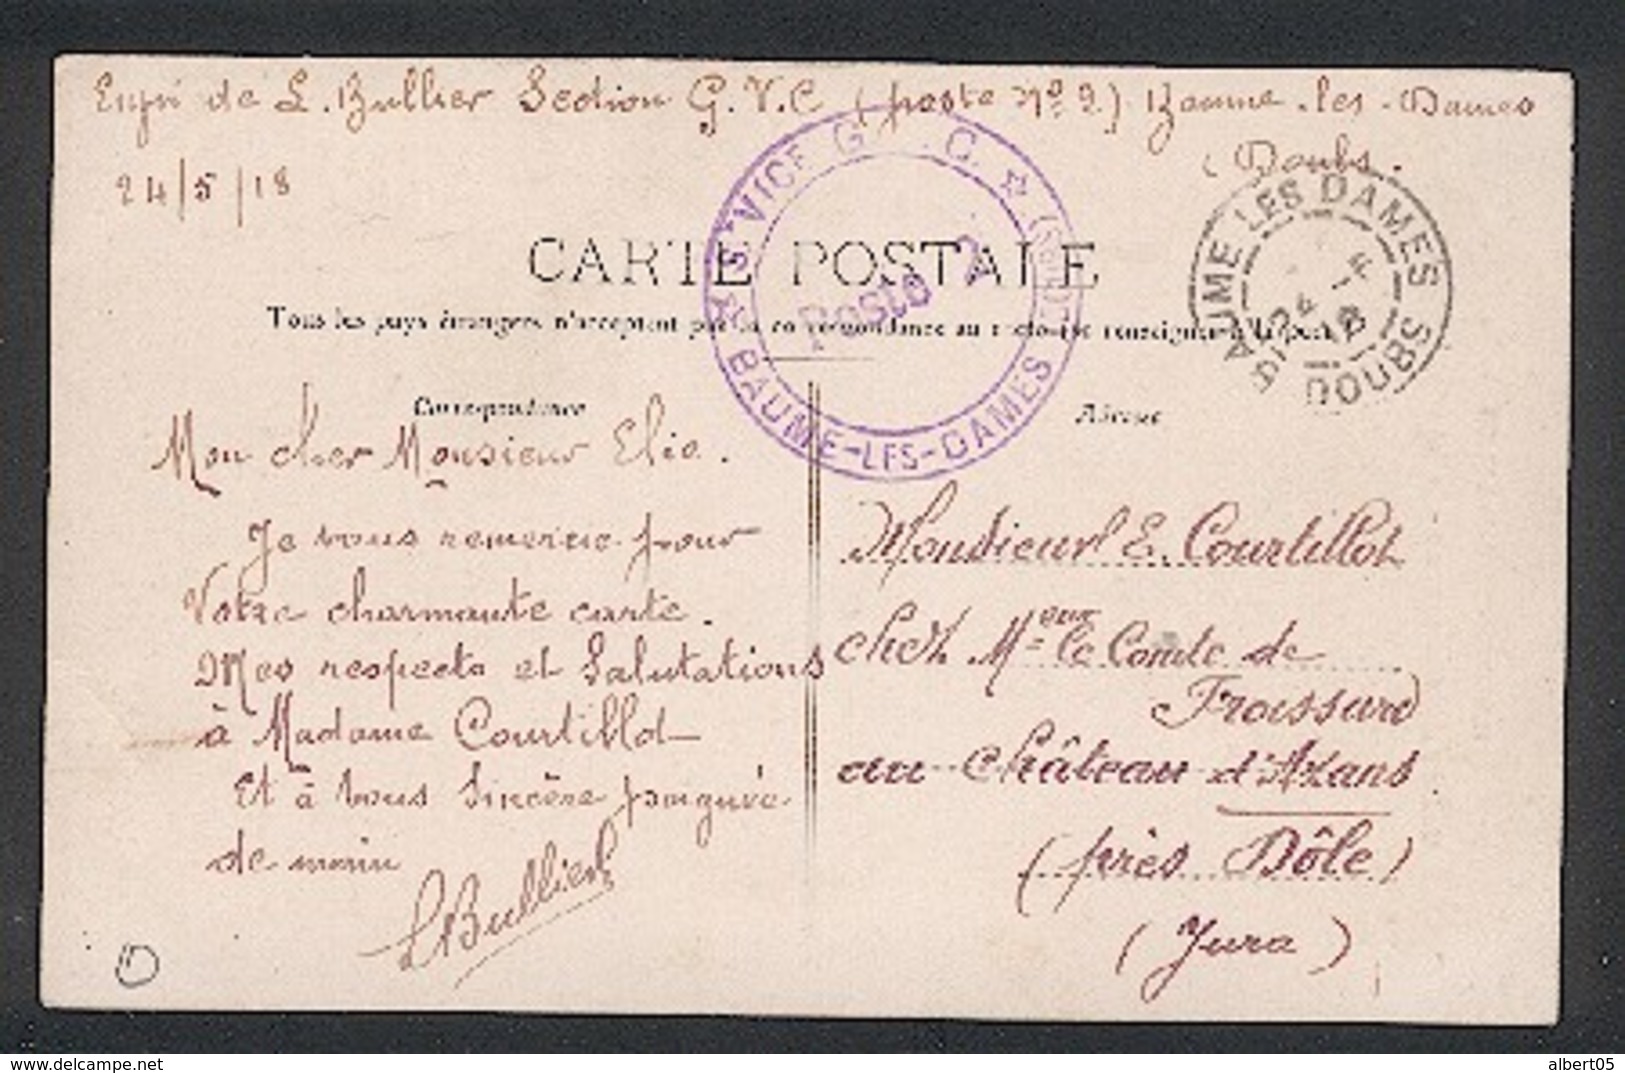 Envoi de L. Bullier Section G.V.C (poste Nº 2.) Baume-les-Dames
(Doubs.
24/5/18
SERVICE G.V.C. ☆ (DOUBS) ☆ BAUME-LES-DAMES
Poste 2
BAUME LES DAMES
24 - 5
18
DOUBS
CARTE POSTALE
Tous les pays étrangers n'acceptent pas la correspondance au recto (se renseigner à la poste)
Correspondance
Adresse
Mon cher Monsieur Elie.
Je vous remercie pour
Votre charmante carte.
Mes respects et Salutations
à Madame Courtillot
Et à vous Sincère poignée
de main
LBullier
Monsieur E. Courtillot
chez Mr le Comte de
Froissard
au Château d'Azans.
(près Dôle)
(Jura)
D
albert05